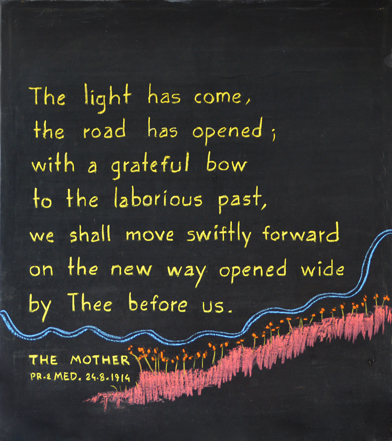 The light has come,
the road has opened;
with a grateful bow
to the laborious past,
we shall move swiftly forward
on the new way opened wide
by Thee before us.
THE MOTHER
PR-& MED. 24.8.1914